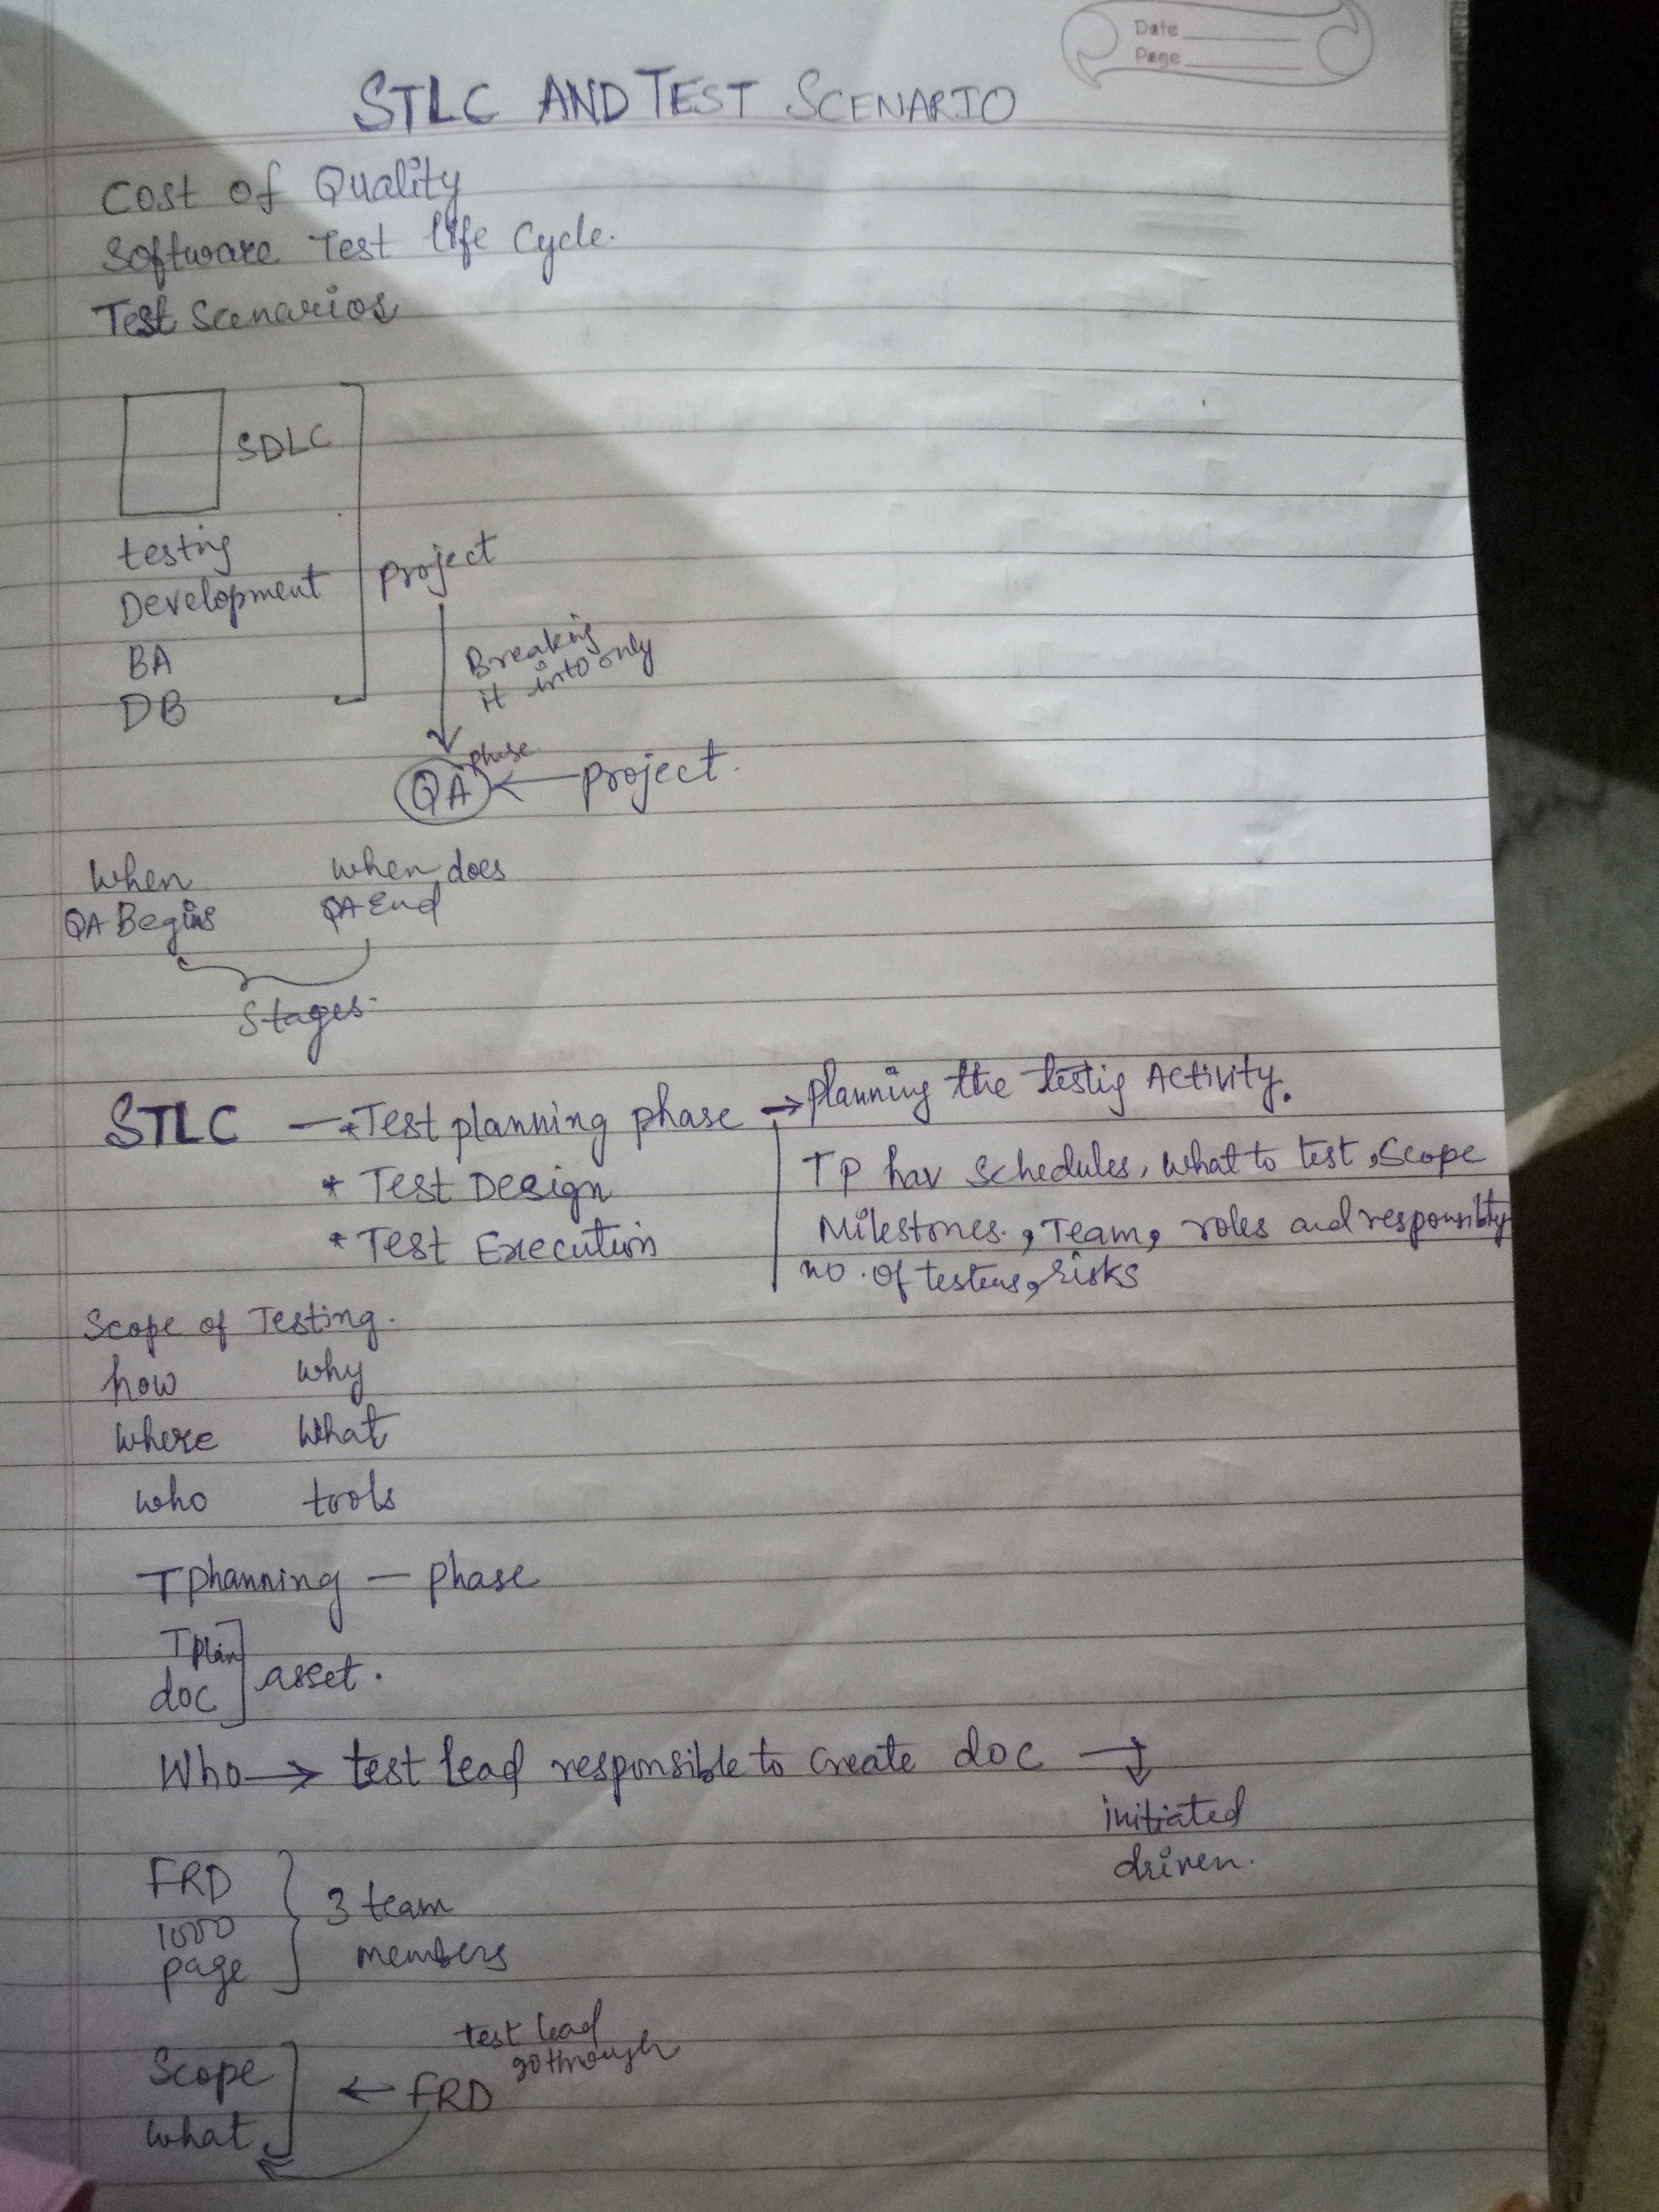 Date
Page
STLC AND TEST SCENARIO
Cost of Quality
Software Test life Cycle.
Test Scenarios
SDLC
testing
Development
BA
DB
project
Breaking
it into only
QA phase ← project.
When
QA Begins
when does
QA End
Stages.
STLC — * Test planning phase → planning the testig Activity.
* Test Design
* Test Execution
TP hav schedules, what to test, Scope
Milestones, Team, roles and responsibity
no. of testers, risks
Scope of Testing.
how why
where what
who tools
T phanning — phase
T plan
doc
asset.
Who → test lead responsible to create doc →
initiated
driven.
FRD
1000
page
3 team
members
test lead
go through
Scope
what
← FRD